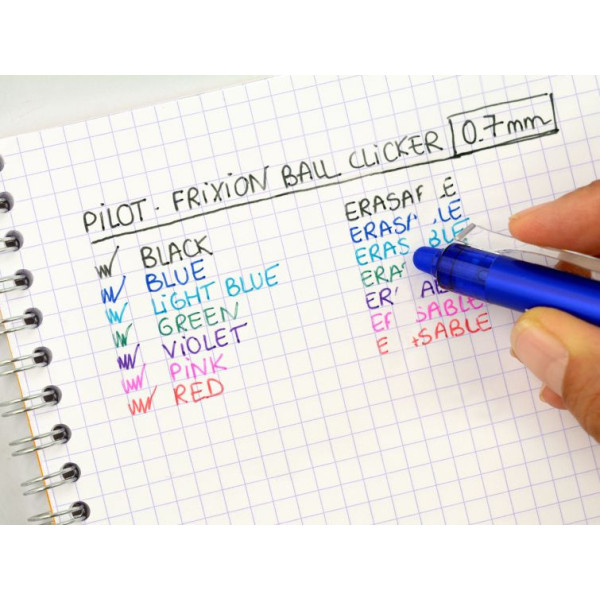 PiLOT. FRiXiON BALL CLiCKER 0.7mm
BLACK
BLUE
LiGHT BLUE
GREEN
ViOLET
PiNK
RED
ERASA E
ERAS LE
ERAS BLE
ERA
ER AB
E SABLE
E SABLE